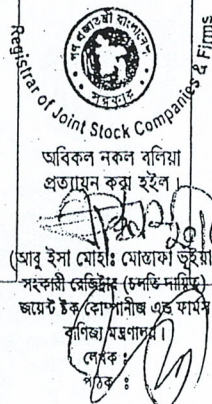 গণপ্রজাতন্ত্রী বাংলাদেশ
সরকার
Registrar of Joint Stock Companies & Firms
অবিকল নকল বলিয়া
প্রত্যায়ন করা হইল।
(আবু ইসা মোহাঃ মোস্তাফা ভূইয়া
সহকারী রেজিষ্ট্রার (চলতি দায়িত্ব)
জয়েন্ট ষ্টক কোম্পানীজ এন্ড ফার্মস
বাণিজ্য মন্ত্রণালয়।
লেখক :
পাঠক :